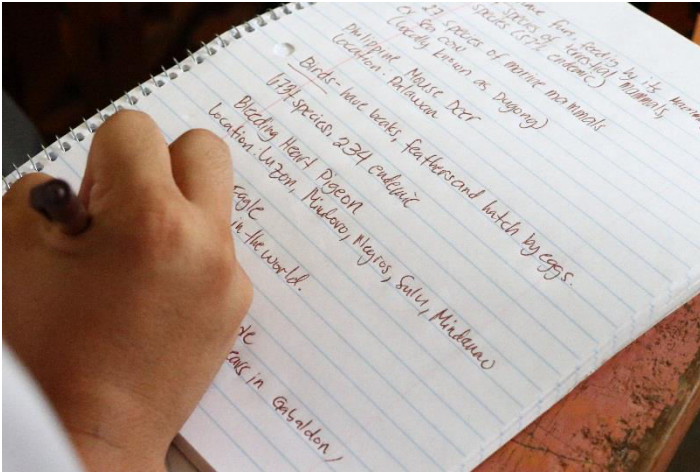 have fur, feeding by its
species of terrestrial mammals,
species (57% endemic)
27 species of marine mammals
or sea cow
(locally known as Dugong)
Philippine Mouse Deer
Location: Palawan
Birds - have beaks, feathers and hatch by eggs.
species, 234 endemic
Bleeding Heart Pigeon
Location: Luzon, Mindoro, Negros, Sulu, Mindanao
Eagle
in the world.
in Gabaldon,